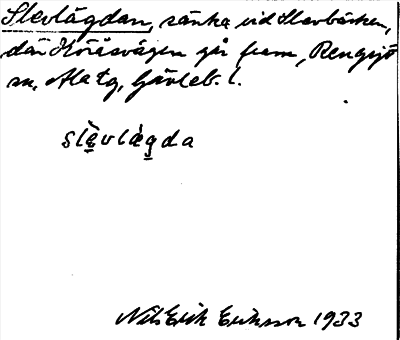 Slevlägdan, sänka vid Slevbäcken,
där Höråsvägen går fram, Rengsjö
sn, Ala tg, Gävleb. l.
slèvlägda
Nils Erik Eriksson 1933